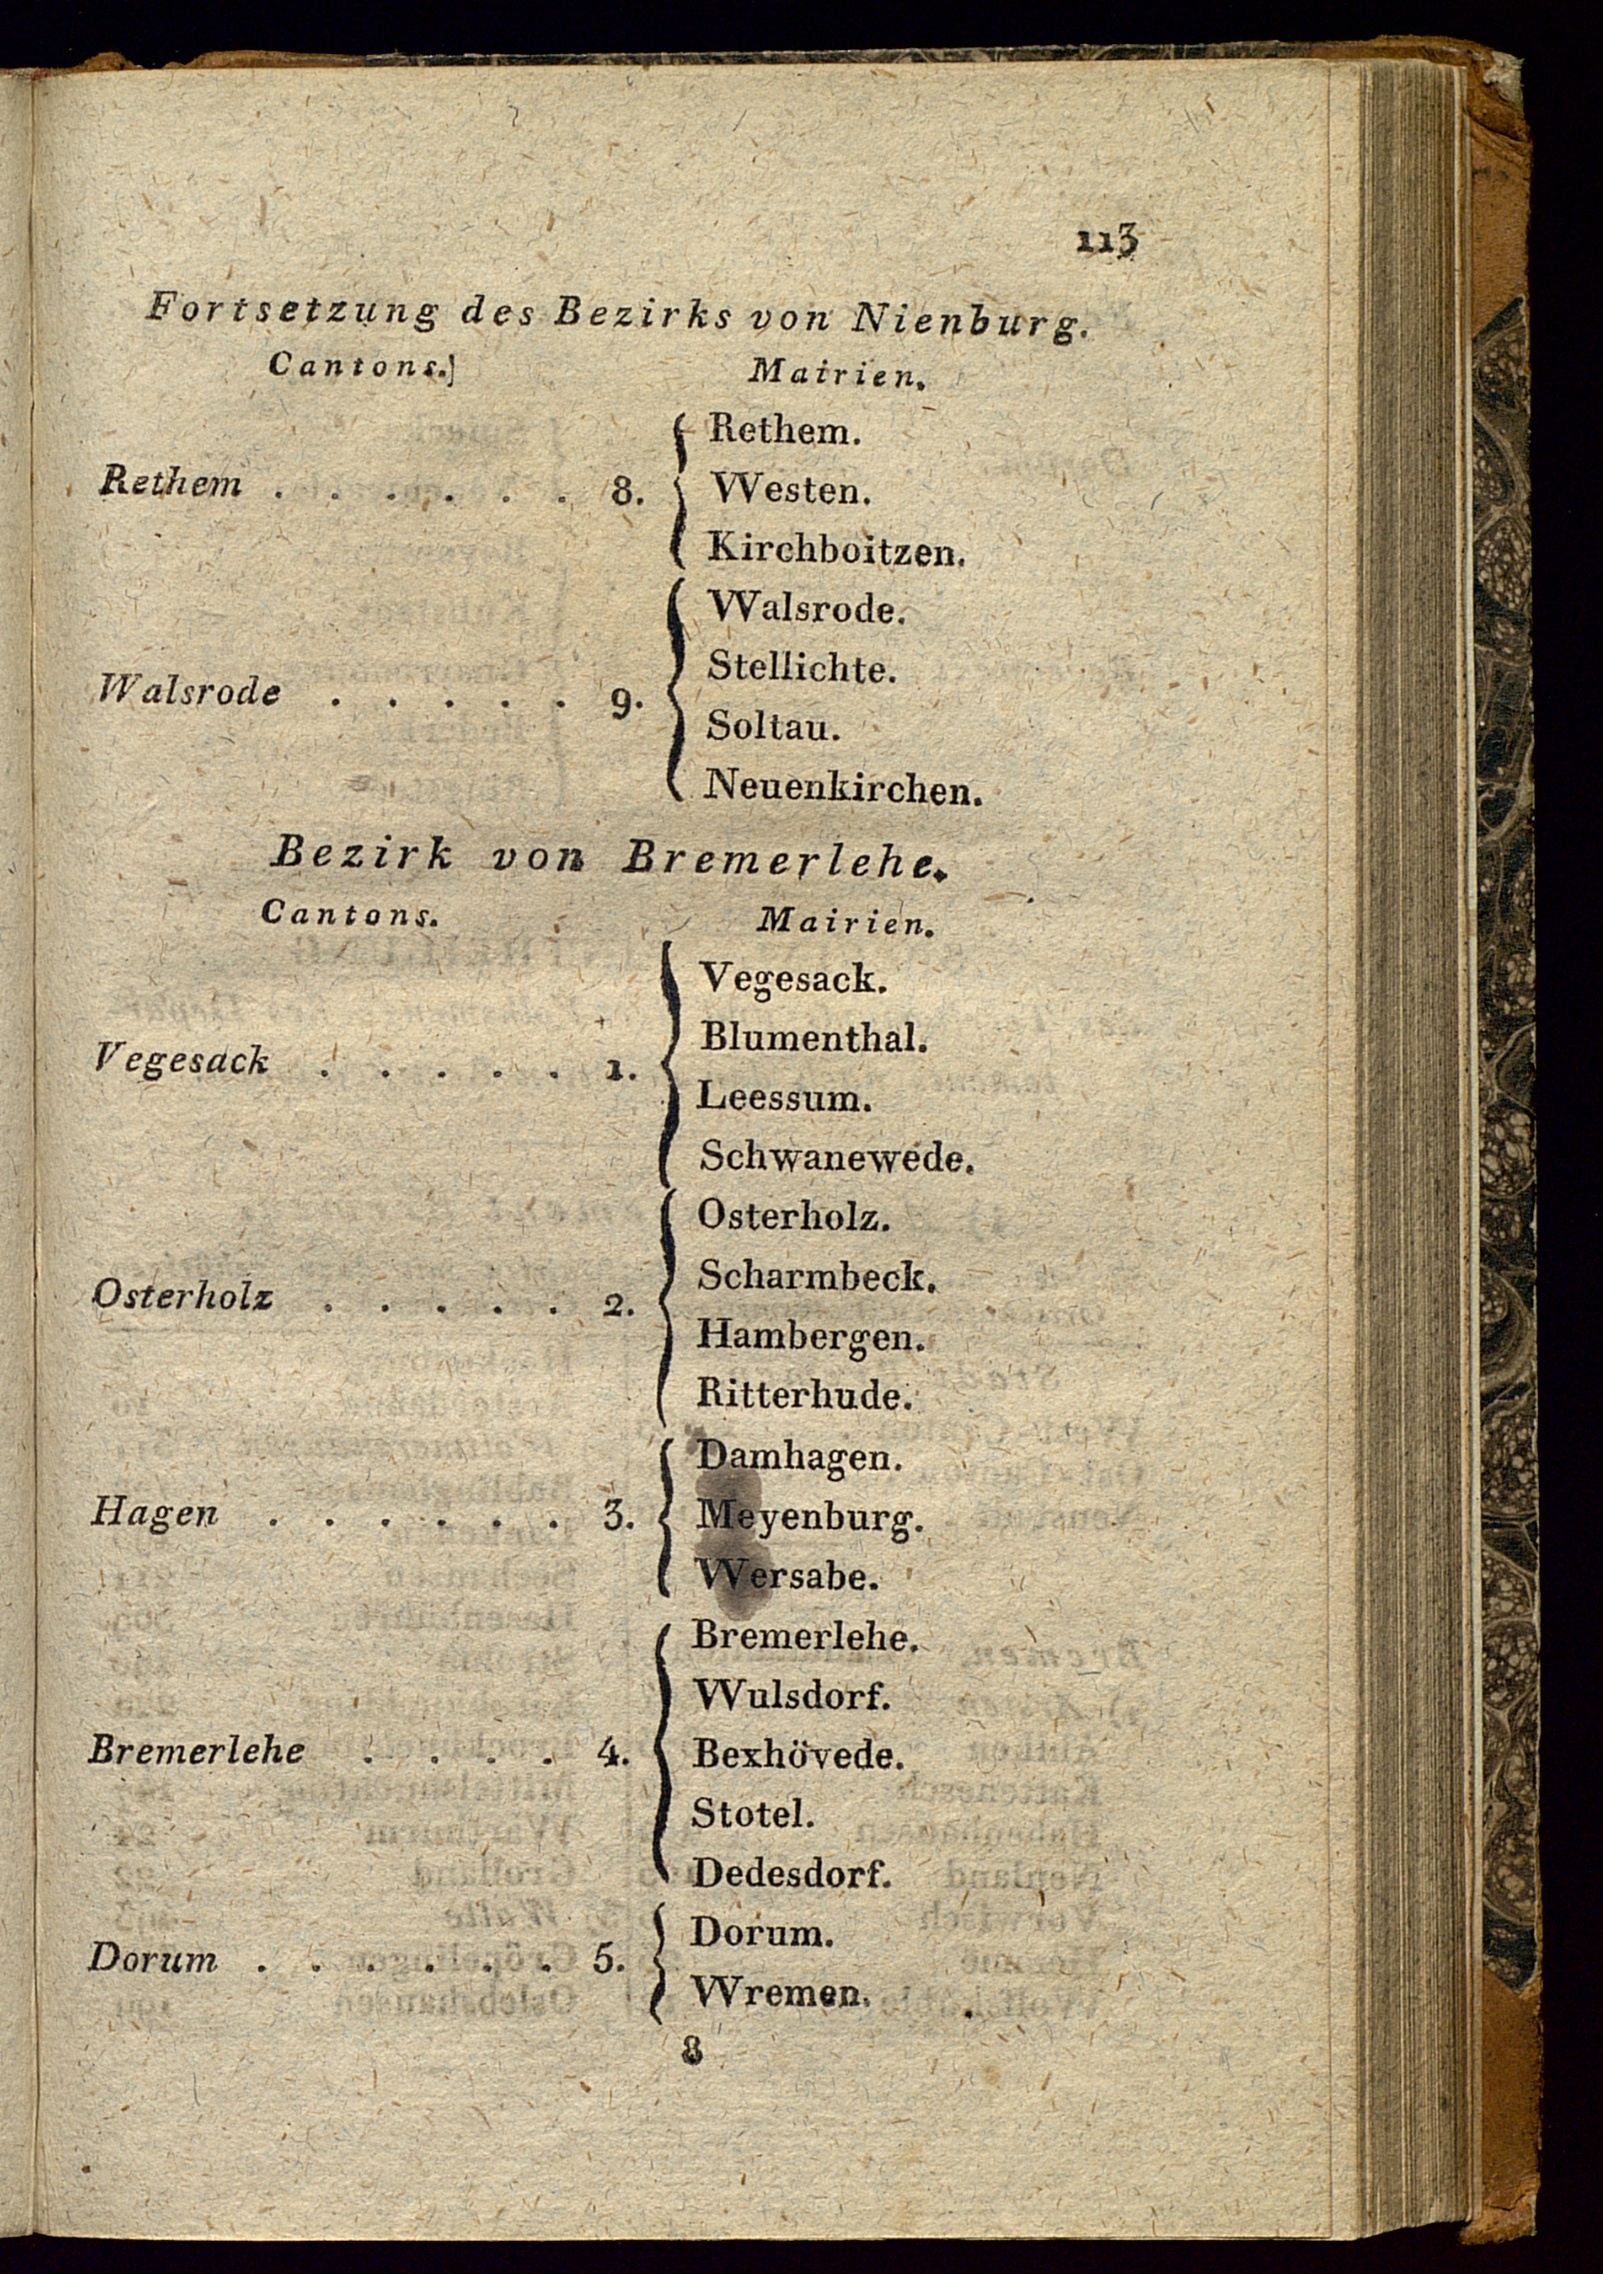 113
Fortsetzung des Bezirks von Nienburg.
Cantons. Mairien.
Rethem.
Rethem . . . . . . 8. Westen.
Kirchboitzen.
Walsrode.
Stellichte.
Walsrode . . . . . 9.
Soltau.
Neuenkirchen.
Bezirk von Bremerlehe.
Cantons. Mairien.
Vegesack.
Blumenthal.
Vegesack . . . . . 1.
Leessum.
Schwanewede.
Osterholz.
Scharmbeck.
Osterholz . . . . . 2.
Hambergen.
Ritterhude.
Damhagen.
Hagen . . . . . . 3. Meyenburg.
Wersabe.
Bremerlehe.
Wulsdorf.
Bremerlehe . . . . 4. Bexhövede.
Stotel.
Dedesdorf.
Dorum.
Dorum . . . . . . 5.
Wremen.
8